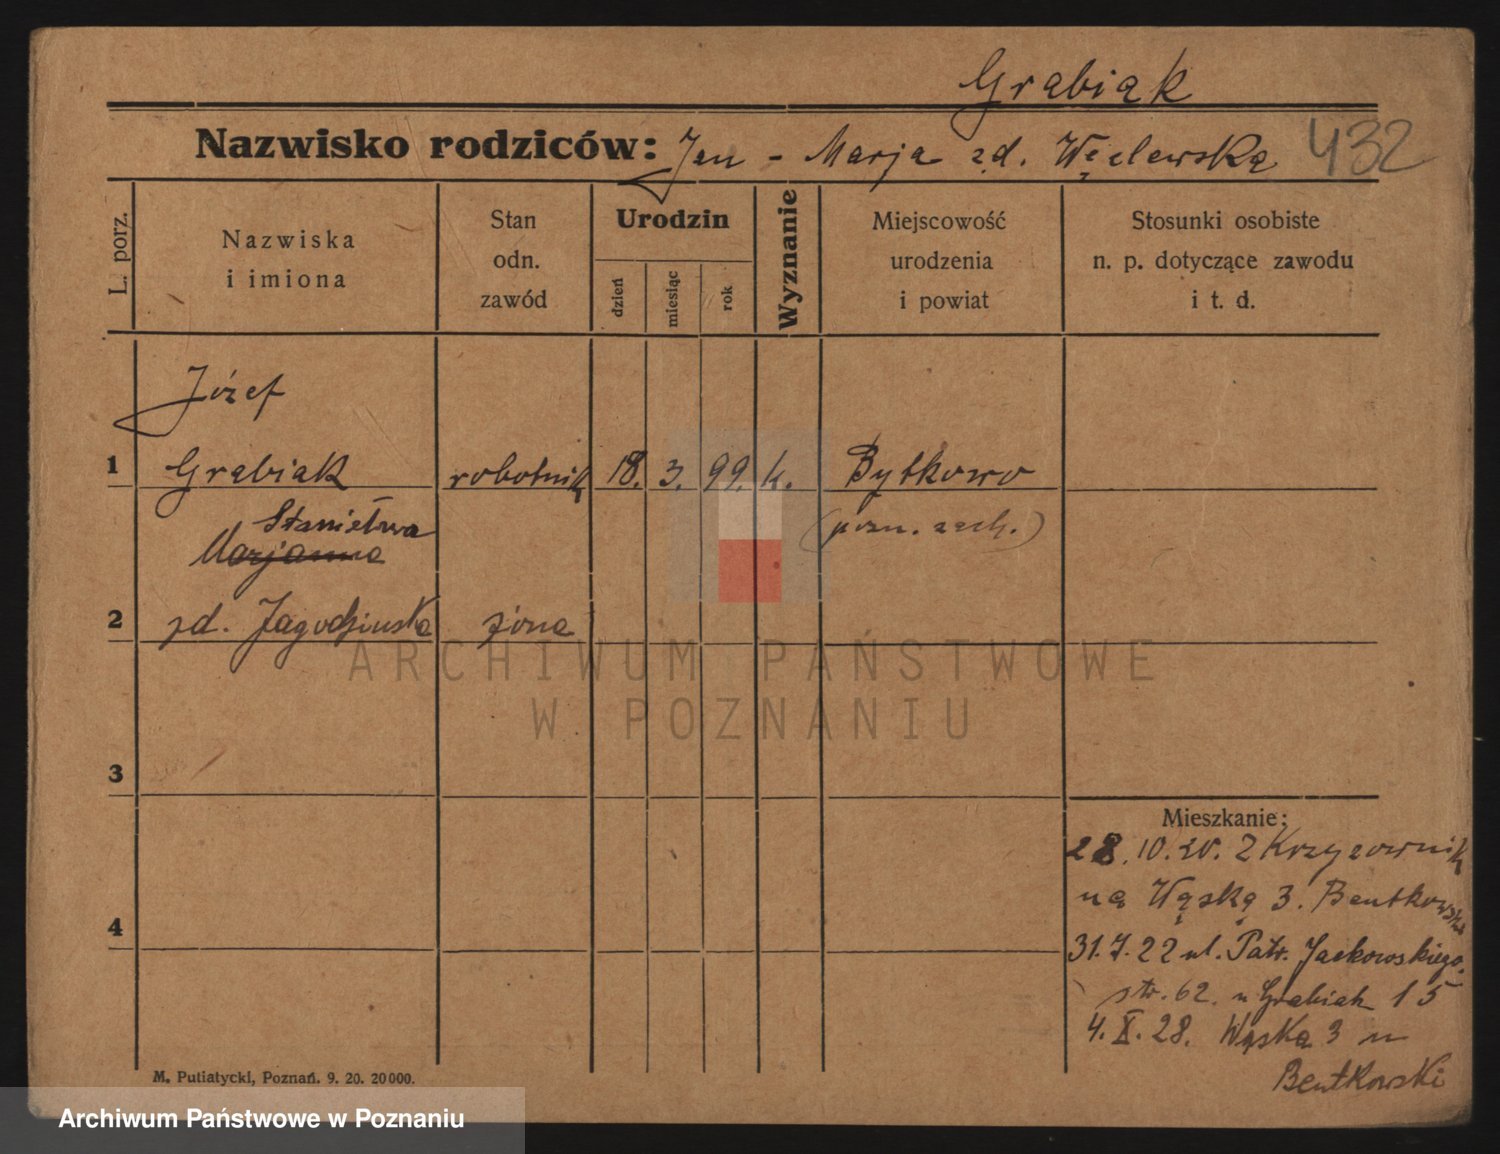 Grabiak
Nazwisko rodziców: Jan - Marja zd. Węclewska 432
L. porz.
Nazwiska
i imiona
Stan
odn.
zawód
Urodzin
dzień
miesiąc
rok
Wyznanie
Miejscowość
urodzenia
i powiat
Stosunki osobiste
n. p. dotyczące zawodu
i t. d.
Józef
1 Grabiak robotnik 18. 3. 99. k. Bytkowo
(pozn. zach.)
Stanisława
Marjanna
2 zd. Jagodzińska żona
3
4
Mieszkanie:
28.10.20. z Krzyżownik
na Wąską 3. Bentkowski
31.7.22 ul. Patr. Jackowskiego
str. 62. u Grabiak 15
4.X.28. Wąska 3 u
Bentkowski
M. Putiatycki, Poznań. 9. 20. 20000.
ARCHIWUM PAŃSTWOWE
W POZNANIU
Archiwum Państwowe w Poznaniu